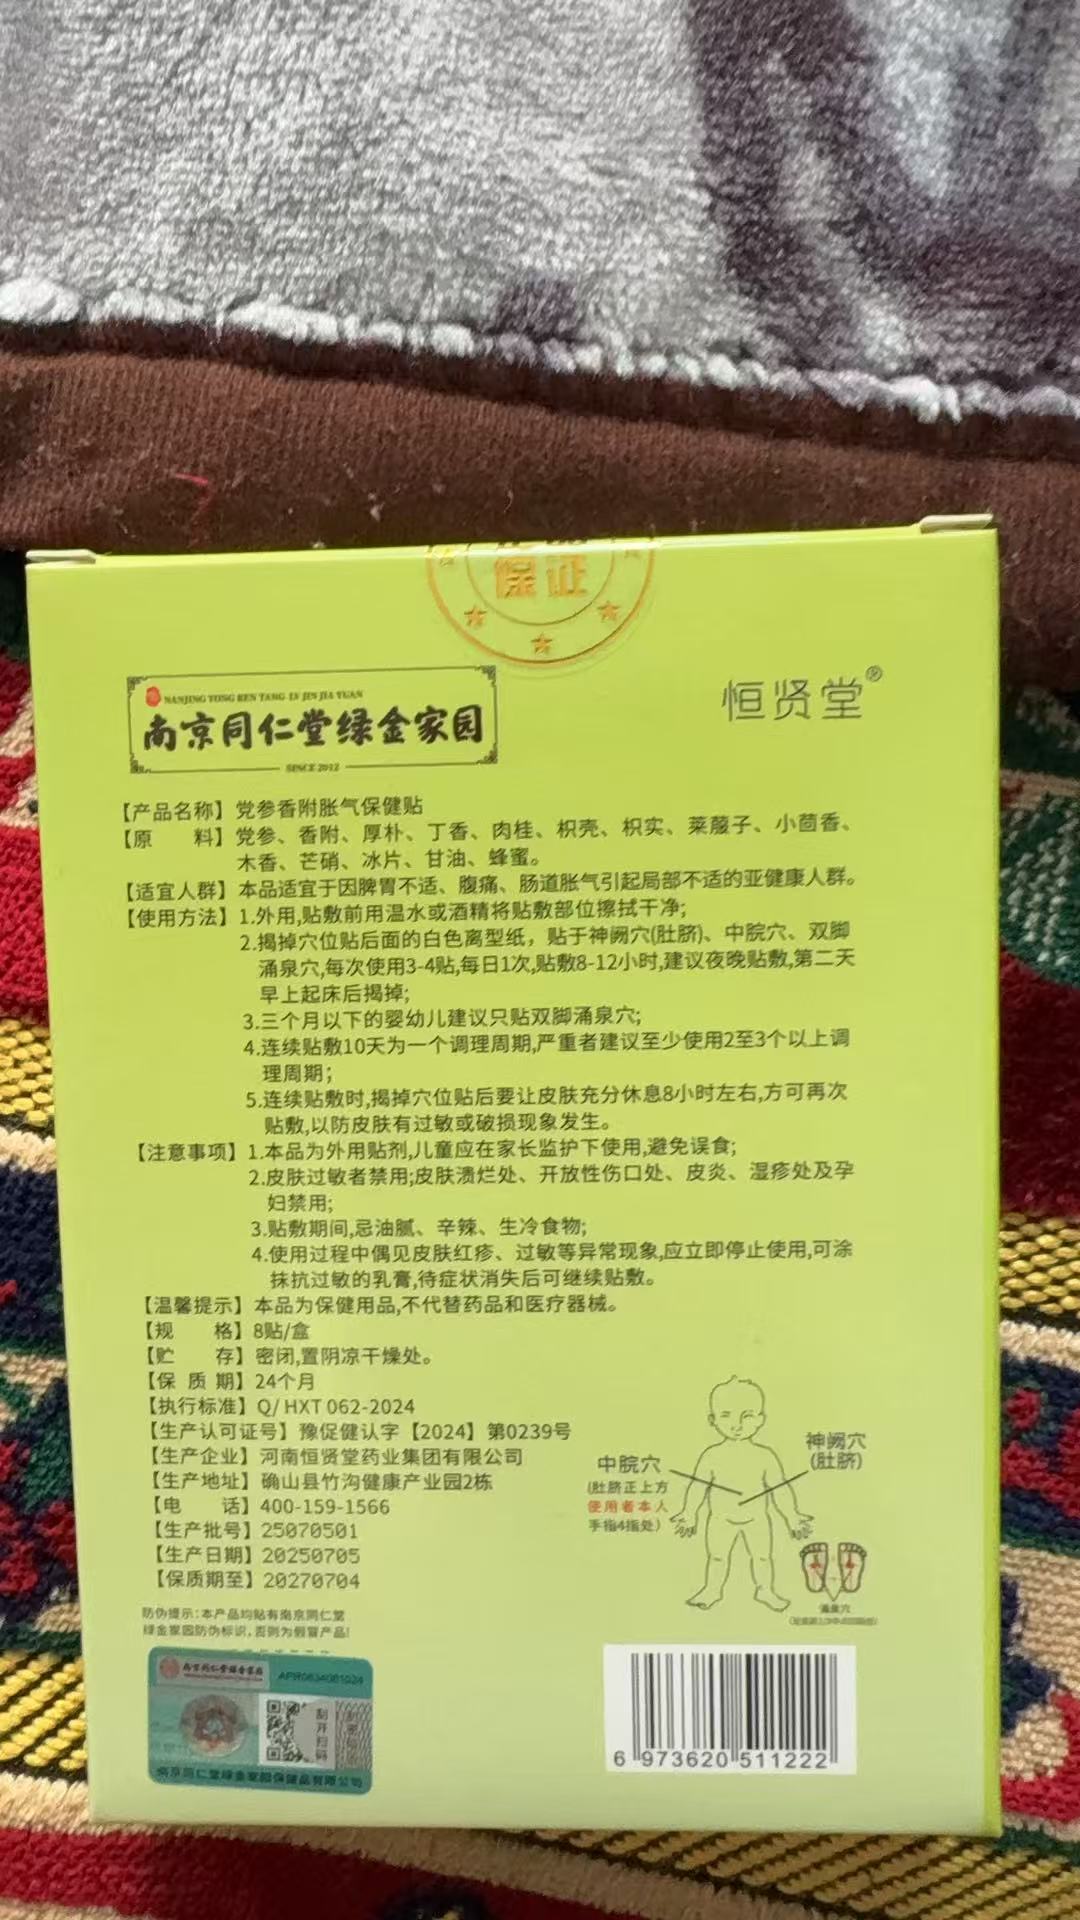 保证
NANJING TONG REN TANG LV JIN JIA YUAN
南京同仁堂绿金家园
SINCE 2012
恒贤堂®
【产品名称】党参香附胀气保健贴
【原　　料】党参、香附、厚朴、丁香、肉桂、枳壳、枳实、莱菔子、小茴香、
木香、芒硝、冰片、甘油、蜂蜜。
【适宜人群】本品适宜于因脾胃不适、腹痛、肠道胀气引起局部不适的亚健康人群。
【使用方法】1.外用,贴敷前用温水或酒精将贴敷部位擦拭干净;
2.揭掉穴位贴后面的白色离型纸，贴于神阙穴(肚脐)、中脘穴、双脚
涌泉穴,每次使用3-4贴,每日1次,贴敷8-12小时,建议夜晚贴敷,第二天
早上起床后揭掉;
3.三个月以下的婴幼儿建议只贴双脚涌泉穴;
4.连续贴敷10天为一个调理周期,严重者建议至少使用2至3个以上调
理周期；
5.连续贴敷时,揭掉穴位贴后要让皮肤充分休息8小时左右,方可再次
贴敷,以防皮肤有过敏或破损现象发生。
【注意事项】1.本品为外用贴剂,儿童应在家长监护下使用,避免误食;
2.皮肤过敏者禁用;皮肤溃烂处、开放性伤口处、皮炎、湿疹处及孕
妇禁用;
3.贴敷期间,忌油腻、辛辣、生冷食物;
4.使用过程中偶见皮肤红疹、过敏等异常现象,应立即停止使用,可涂
抹抗过敏的乳膏,待症状消失后可继续贴敷。
【温馨提示】本品为保健用品,不代替药品和医疗器械。
【规　　格】8贴/盒
【贮　　存】密闭,置阴凉干燥处。
【保 质 期】24个月
【执行标准】Q/ HXT 062-2024
【生产许可证号】豫促健认字【2024】第0239号
【生产企业】河南恒贤堂药业集团有限公司
【生产地址】确山县竹沟健康产业园2栋
【电　　话】400-159-1566
【生产批号】25070501
【生产日期】20250705
【保质期至】20270704
中脘穴
(肚脐正上方
使用者本人
手指4指处)
神阙穴
(肚脐)
涌泉穴
防伪提示:本产品均贴有南京同仁堂
绿金家园防伪标识,否则为假冒产品!
南京同仁堂绿金家园
刮开扫码
南京同仁堂绿金家园保健品有限公司
6 973620 511222